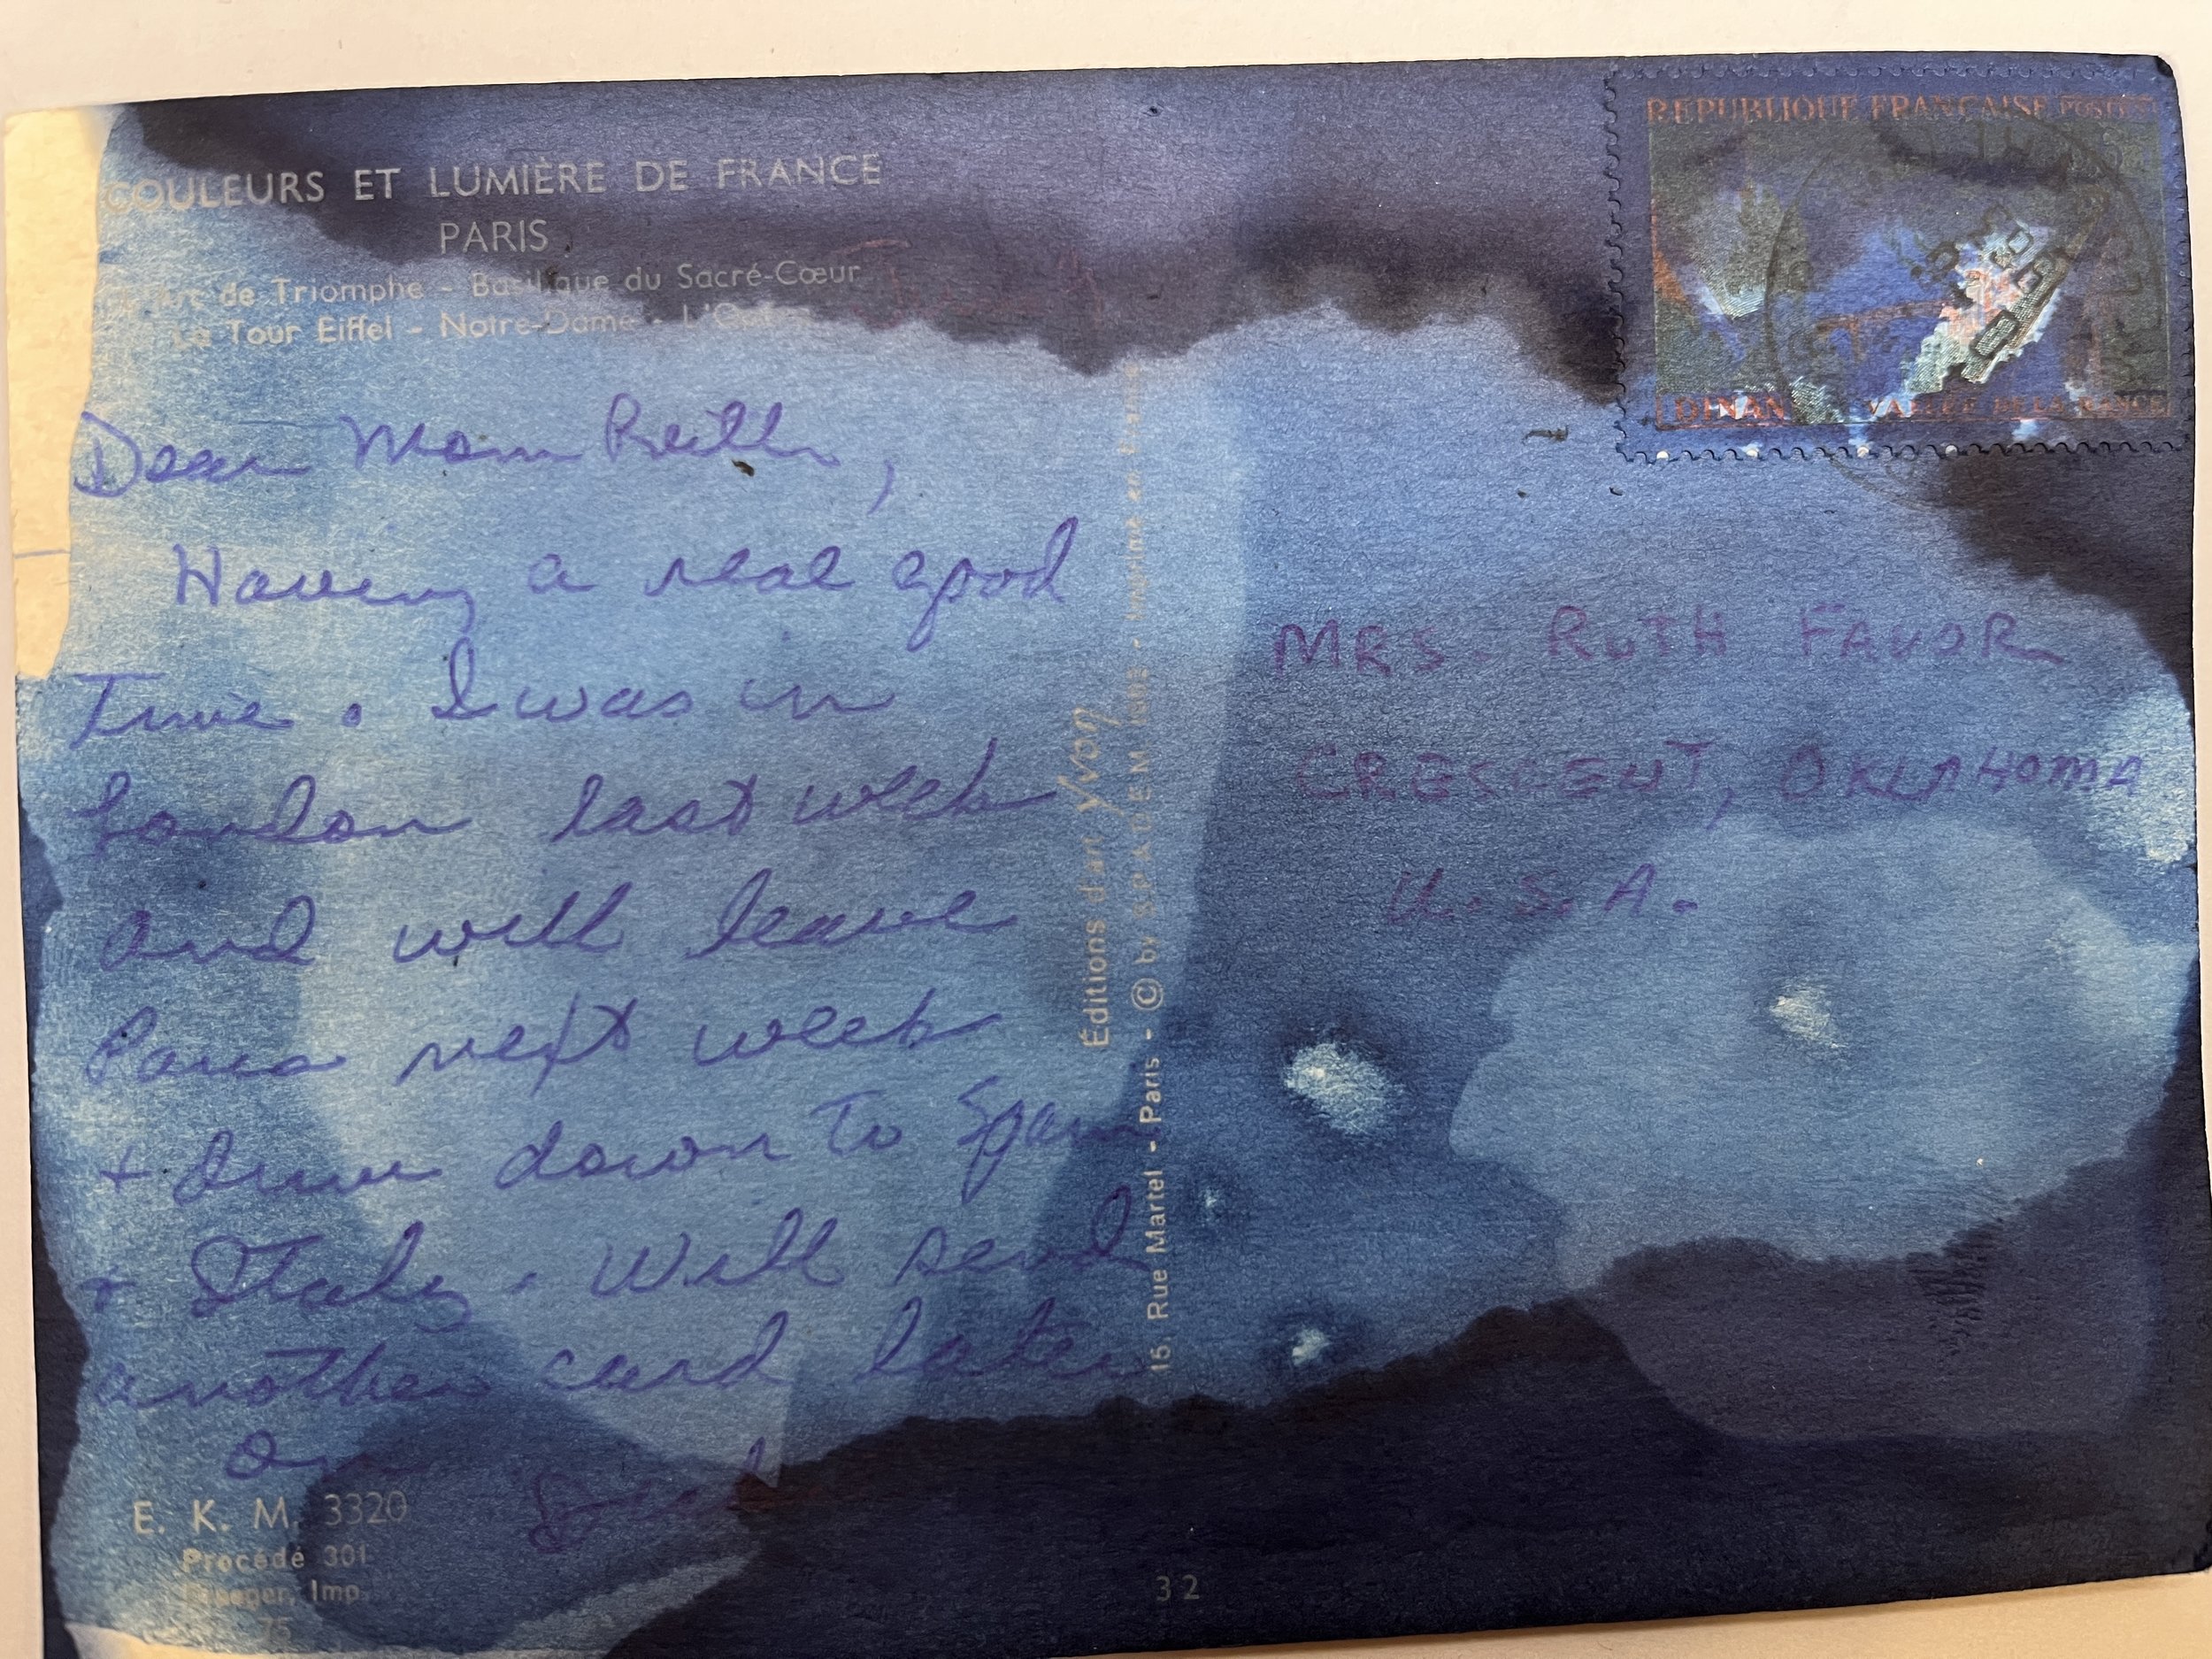 COULEURS ET LUMIÈRE DE FRANCE
PARIS
Arc de Triomphe - Basilique du Sacré-Cœur
La Tour Eiffel - Notre-Dame - L'Opéra
REPUBLIQUE FRANÇAISE POSTES
DINAN VALLÉE DE LA RANCE
Dear Mom Ruth,
Having a real good
Time. I was in
London last week
and will leave
Paris next week
+ drive down To Spain
+ Italy. Will send
another card later
on
MRS. RUTH FAVOR
CRESCENT, OKLAHOMA
U.S.A.
Éditions d'art Yvon
15, Rue Martel - Paris - © by S.P.A.D.E.M. - Imprimé en France
E. K. M. 3320
Procédé 301
Draeger, Imp.
75
32